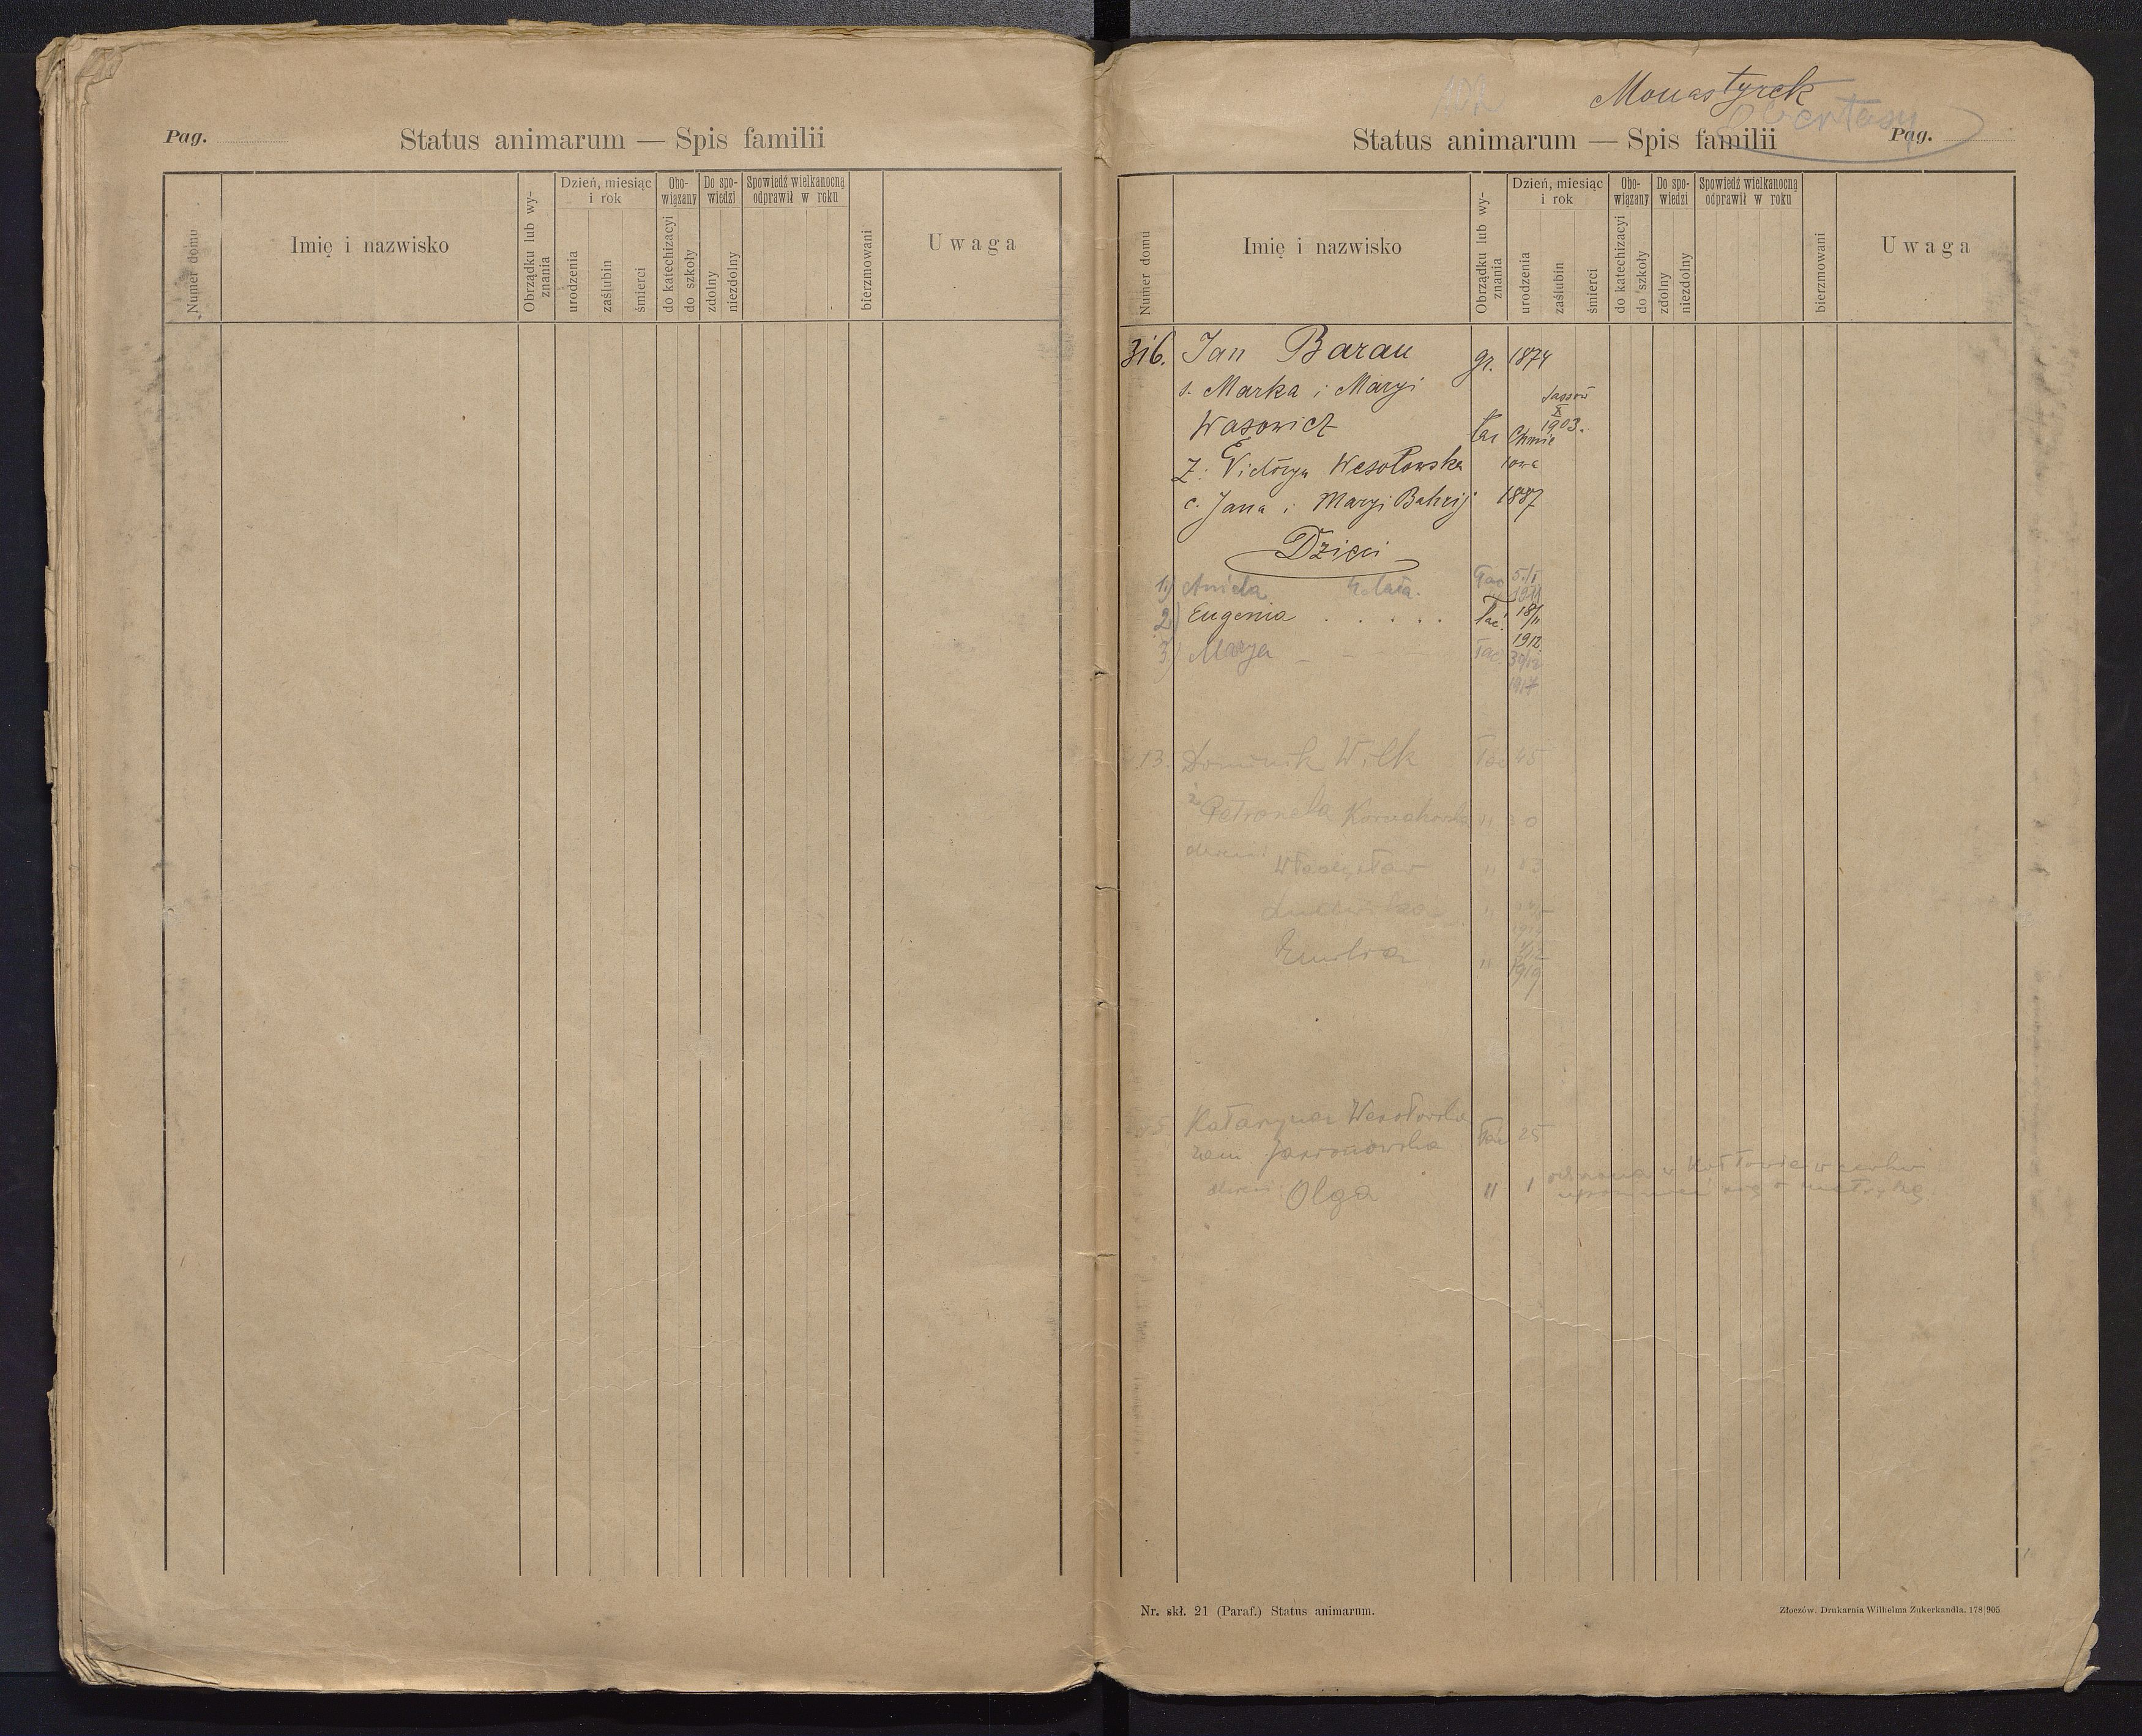 Pag.
Status animarum — Spis familii
Numer domu
Imię i nazwisko
Obrządku lub wy-
znania
Dzień, miesiąc
i rok
urodzenia
zaślubin
śmierci
Obo-
wiązany
do katechizacyi
do szkoły
Do spo-
wiedzi
zdolny
niezdolny
Spowiedź wielkanocną
odprawił w roku
bierzmowani
Uwaga
Monastyrek
Status animarum — Spis familii
Pag.
Numer domu
Imię i nazwisko
Obrządku lub wy-
znania
Dzień, miesiąc
i rok
urodzenia
zaślubin
śmierci
Obo-
wiązany
do katechizacyi
do szkoły
Do spo-
wiedzi
zdolny
niezdolny
Spowiedź wielkanocną
odprawił w roku
bierzmowani
Uwaga
316. Jan Baran gr. 1874
s. Marka i Maryi Sassów
X
Wasowicz łac 1903.
Ż. Victorya Wesołowska
c. Jana i Maryi 1887
Dzieci
1) Aniela łac 5/I
2) Eugenia . . . . . łac. 18/11
1912
3) Marya łac. 30/12
1917
13. Dominik Wilk łac 45
ż Petronela "
dzieci: Władysław " 
Ludwika "
Emilia " 1919
Katarzyna Wesołowska łac 25
zam.
dzieci: Olga " 1
Nr. skł. 21 (Paraf.) Status animarum.
Złoczów. Drukarnia Wilhelma Zukerkandla. 178|905